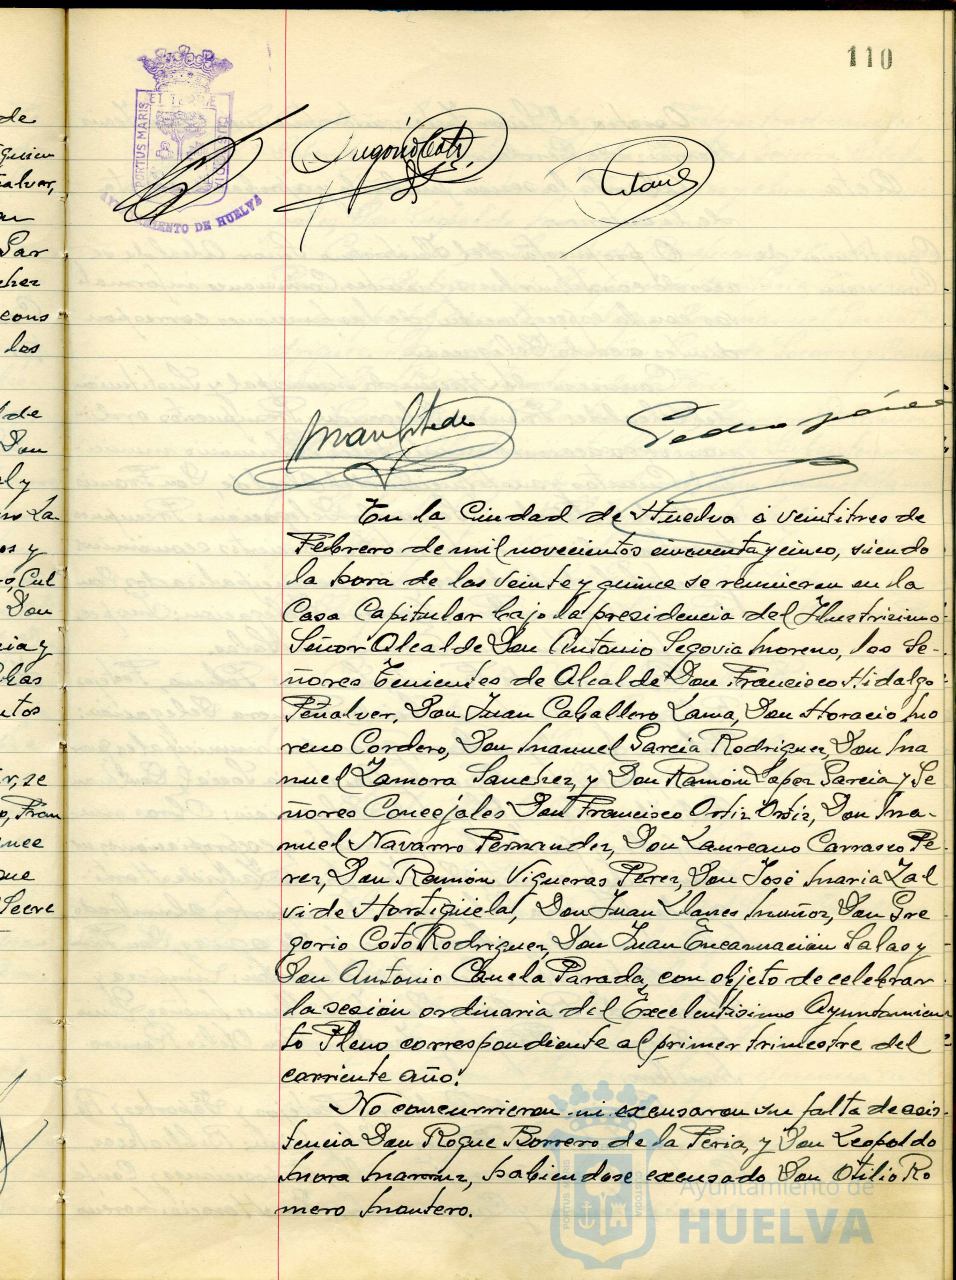 110
PORTUS MARIS ET TERRE CUSTODIA
AYUNTAMIENTO DE HUELVA
Gregorio Coto
En la Ciudad de Huelva á veintitres de
Febrero de mil novecientos cincuenta y cinco, siendo
la hora de las veinte y quince se reunieron en la
Casa Capitular bajo la presidencia del Ilustrisimo
Señor Alcalde Don Antonio Segovia Moreno, los Se-
ñores Tenientes de Alcalde Don Francisco Hidalgo
Peñalver, Don Juan Caballero Lama, Don Horacio Mo
reno Cordero, Don Manuel Garcia Rodriguez, Don Ma
nuel Zamora Sanchez, y Don Ramón Lopez Garcia y Se
ñores Concejales Don Francisco Ortiz Ortiz, Don Ma-
nuel Navarro Fernandez, Don Laureano Carrasco Pe-
rez, Don Ramón Vigueras Perez, Don José Maria Zal
vide Hortigüela, Don Juan Llanes Muñoz, Don Gre
gorio Coto Rodriguez, Don Juan Encarnación Salao y
Don Antonio Canela Parada, con objeto de celebrar
la sesión ordinaria del Excelentisimo Ayuntamien
to Pleno correspondiente al primer trimestre del
corriente año.
No concurrieron ni excusaron su falta de asis-
tencia Don Roque Borrero de la Feria, y Don Leopoldo
Mora habiendose excusado Don Otilio Ro
mero Montero.
Ayuntamiento de
HUELVA